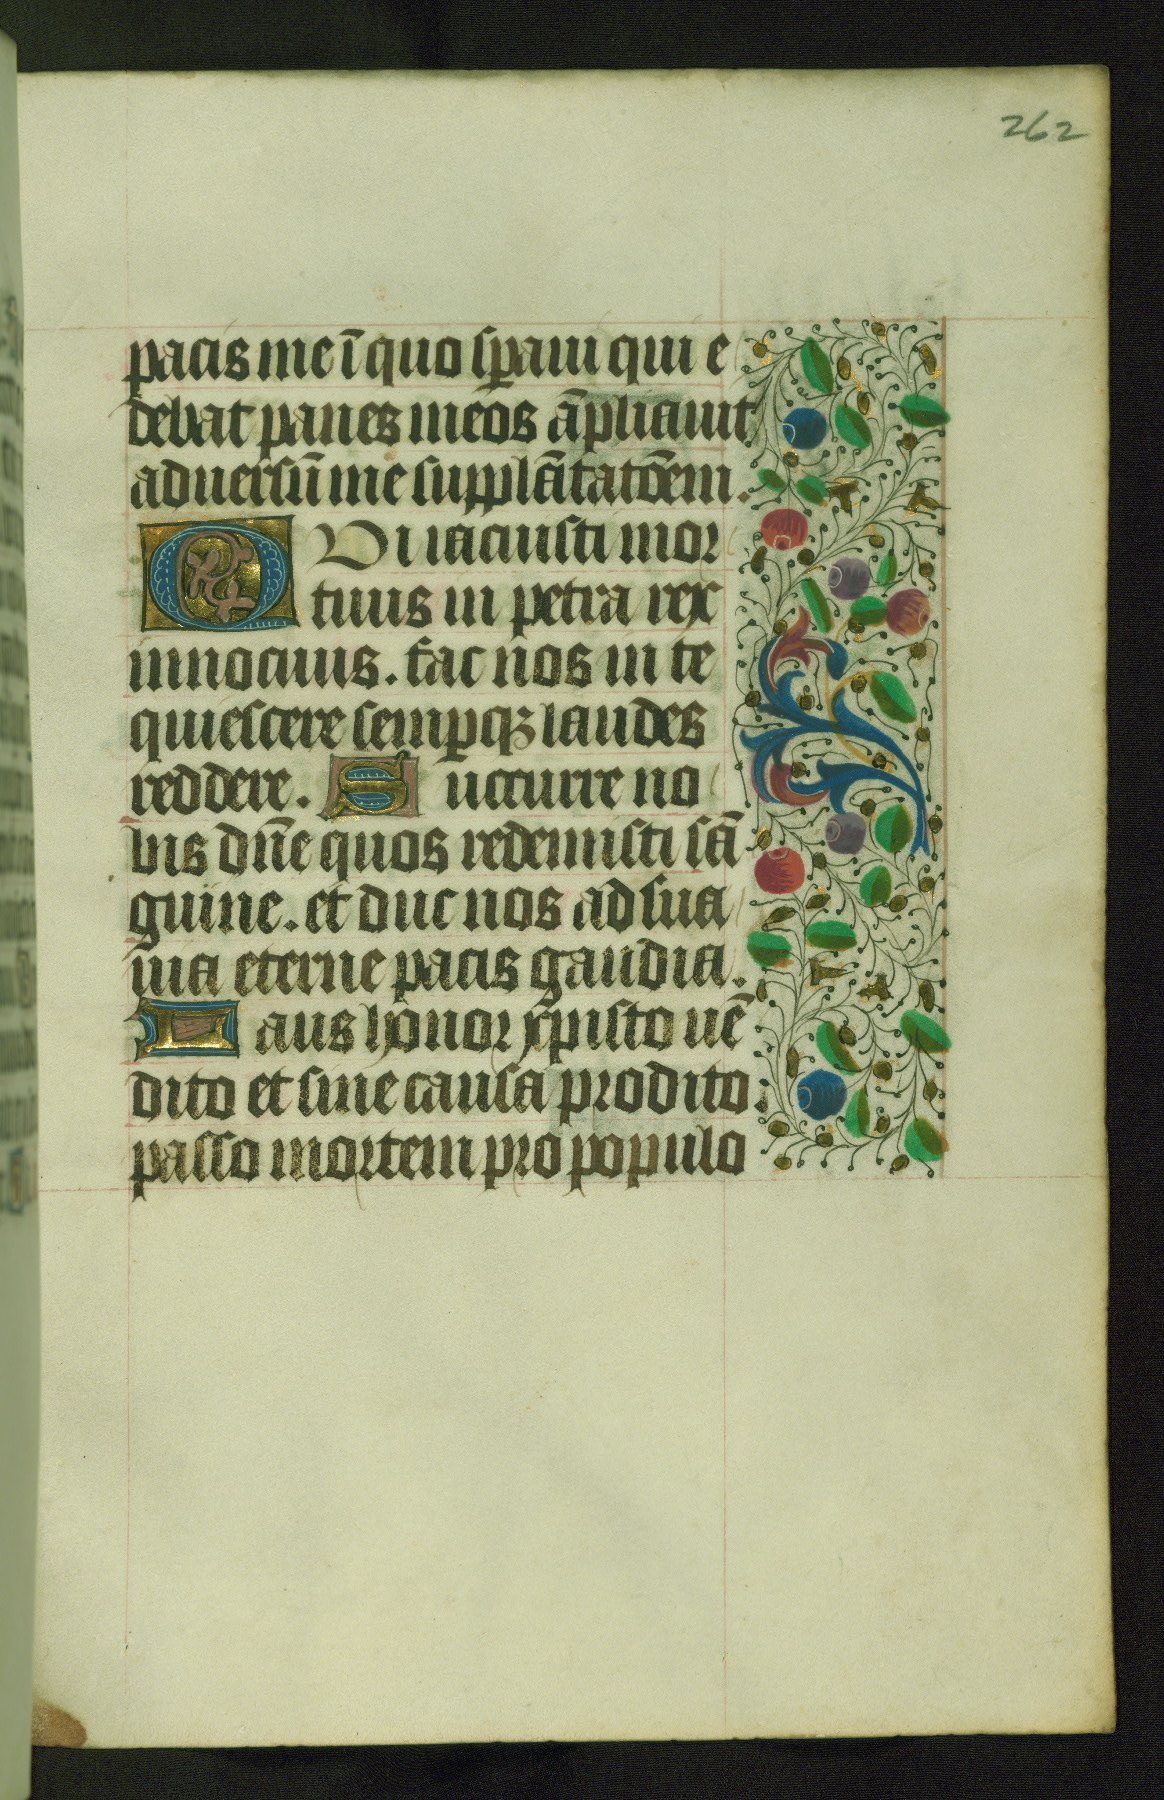 262
pacis me ī quo sp̄aui qui e
debat panes meos āpliauit
aduersū me supplātatōem.
QVi iacuisti mor
tuus in petra rex
innocuus. fac nos in te
quiescere semp̱qʒ laudes
reddere. Succurre no
bis dn̄e quos redemisti sā
guine. et duc nos ad sua
uia eterne pacis gaudia.
Laus honor xp̄isto uē
dito et sine causa prodito.
passo mortem pro populo